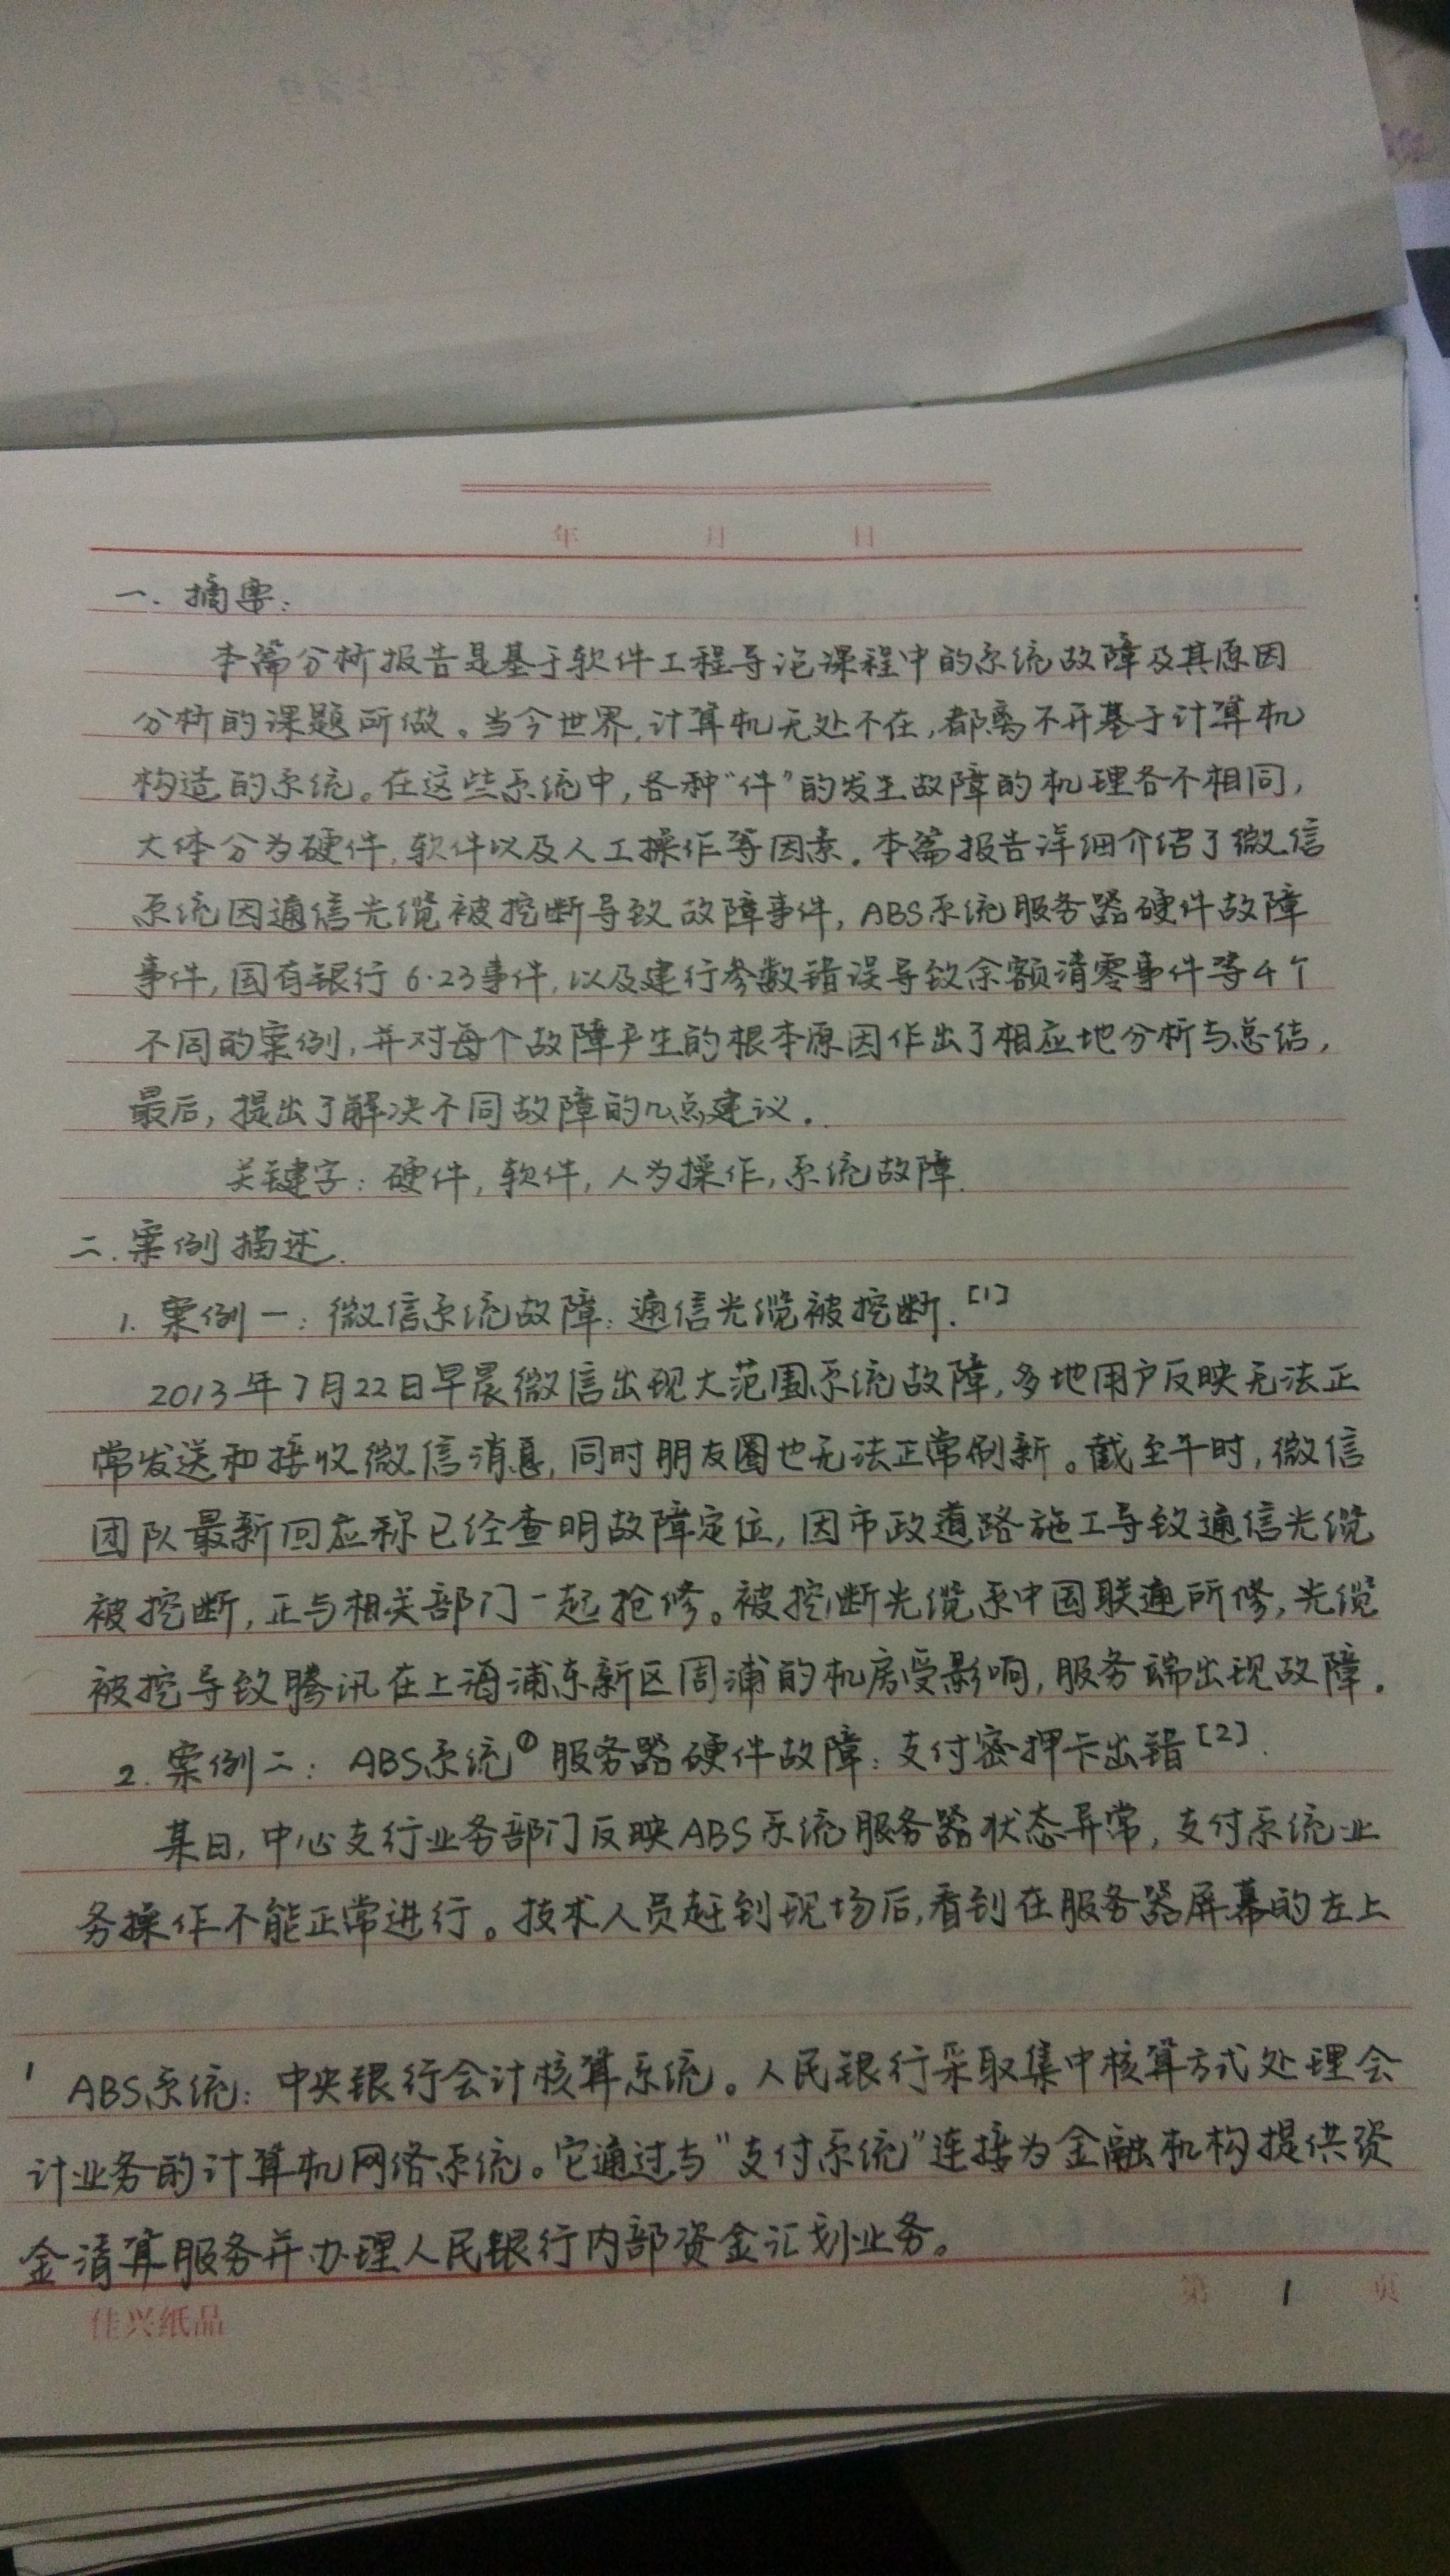 年 月 日
一. 摘要:
本篇分析报告是基于软件工程导论课程中的系统故障及其原因
分析的课题所做。当今世界,计算机无处不在,都离不开基于计算机
构造的系统。在这些系统中,各种“件”的发生故障的机理各不相同,
大体分为硬件,软件以及人工操作等因素.本篇报告详细介绍了微信
系统因通信光缆被挖断导致故障事件,ABS系统服务器硬件故障
事件,国有银行6·23事件,以及建行参数错误导致余额清零事件等4个
不同的案例,并对每个故障产生的根本原因作出了相应地分析与总结,
最后,提出了解决不同故障的几点建议.
关键字:硬件,软件,人为操作,系统故障.
二.案例描述.
1. 案例一:微信系统故障:通信光缆被挖断.[1]
2013年7月22日早晨微信出现大范围系统故障,多地用户反映无法正
常发送和接收微信消息,同时朋友圈也无法正常刷新。截至午时,微信
团队最新回应称已经查明故障定位,因市政道路施工导致通信光缆
被挖断,正与相关部门一起抢修。被挖断光缆系中国联通所修,光缆
被挖导致腾讯在上海浦东新区周浦的机房受影响,服务端出现故障.
2. 案例二: ABS系统① 服务器硬件故障:支付密押卡出错[2].
某日,中心支行业务部门反映ABS系统服务器状态异常,支付系统业
务操作不能正常进行。技术人员赶到现场后,看到在服务器屏幕的左上
1 ABS系统:中央银行会计核算系统。人民银行采取集中核算方式处理会
计业务的计算机网络系统。它通过与“支付系统”连接为金融机构提供资
金清算服务并办理人民银行内部资金汇划业务。
佳兴纸品 第 1 页